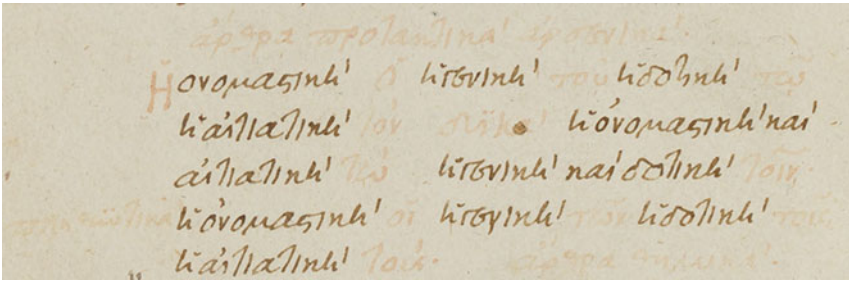 ἄρθρα προτακτικὰ ἀρσενικά.
Ἡ ὀνομαστικὴ ὁ ἡ γενικὴ τοῦ ἡ δοτικὴ τῷ
ἡ αἰτιατικὴ τὸν δυϊκὰ ἡ ὀνομαστικὴ καὶ
αἰτιατικὴ τὼ ἡ γενικὴ καὶ δοτικὴ τοῖν
ἡ ὀνομαστικὴ οἱ ἡ γενικὴ τῶν ἡ δοτικὴ τοῖς
ἡ αἰτιατικὴ τούς. ἄρθρα θηλυκά.